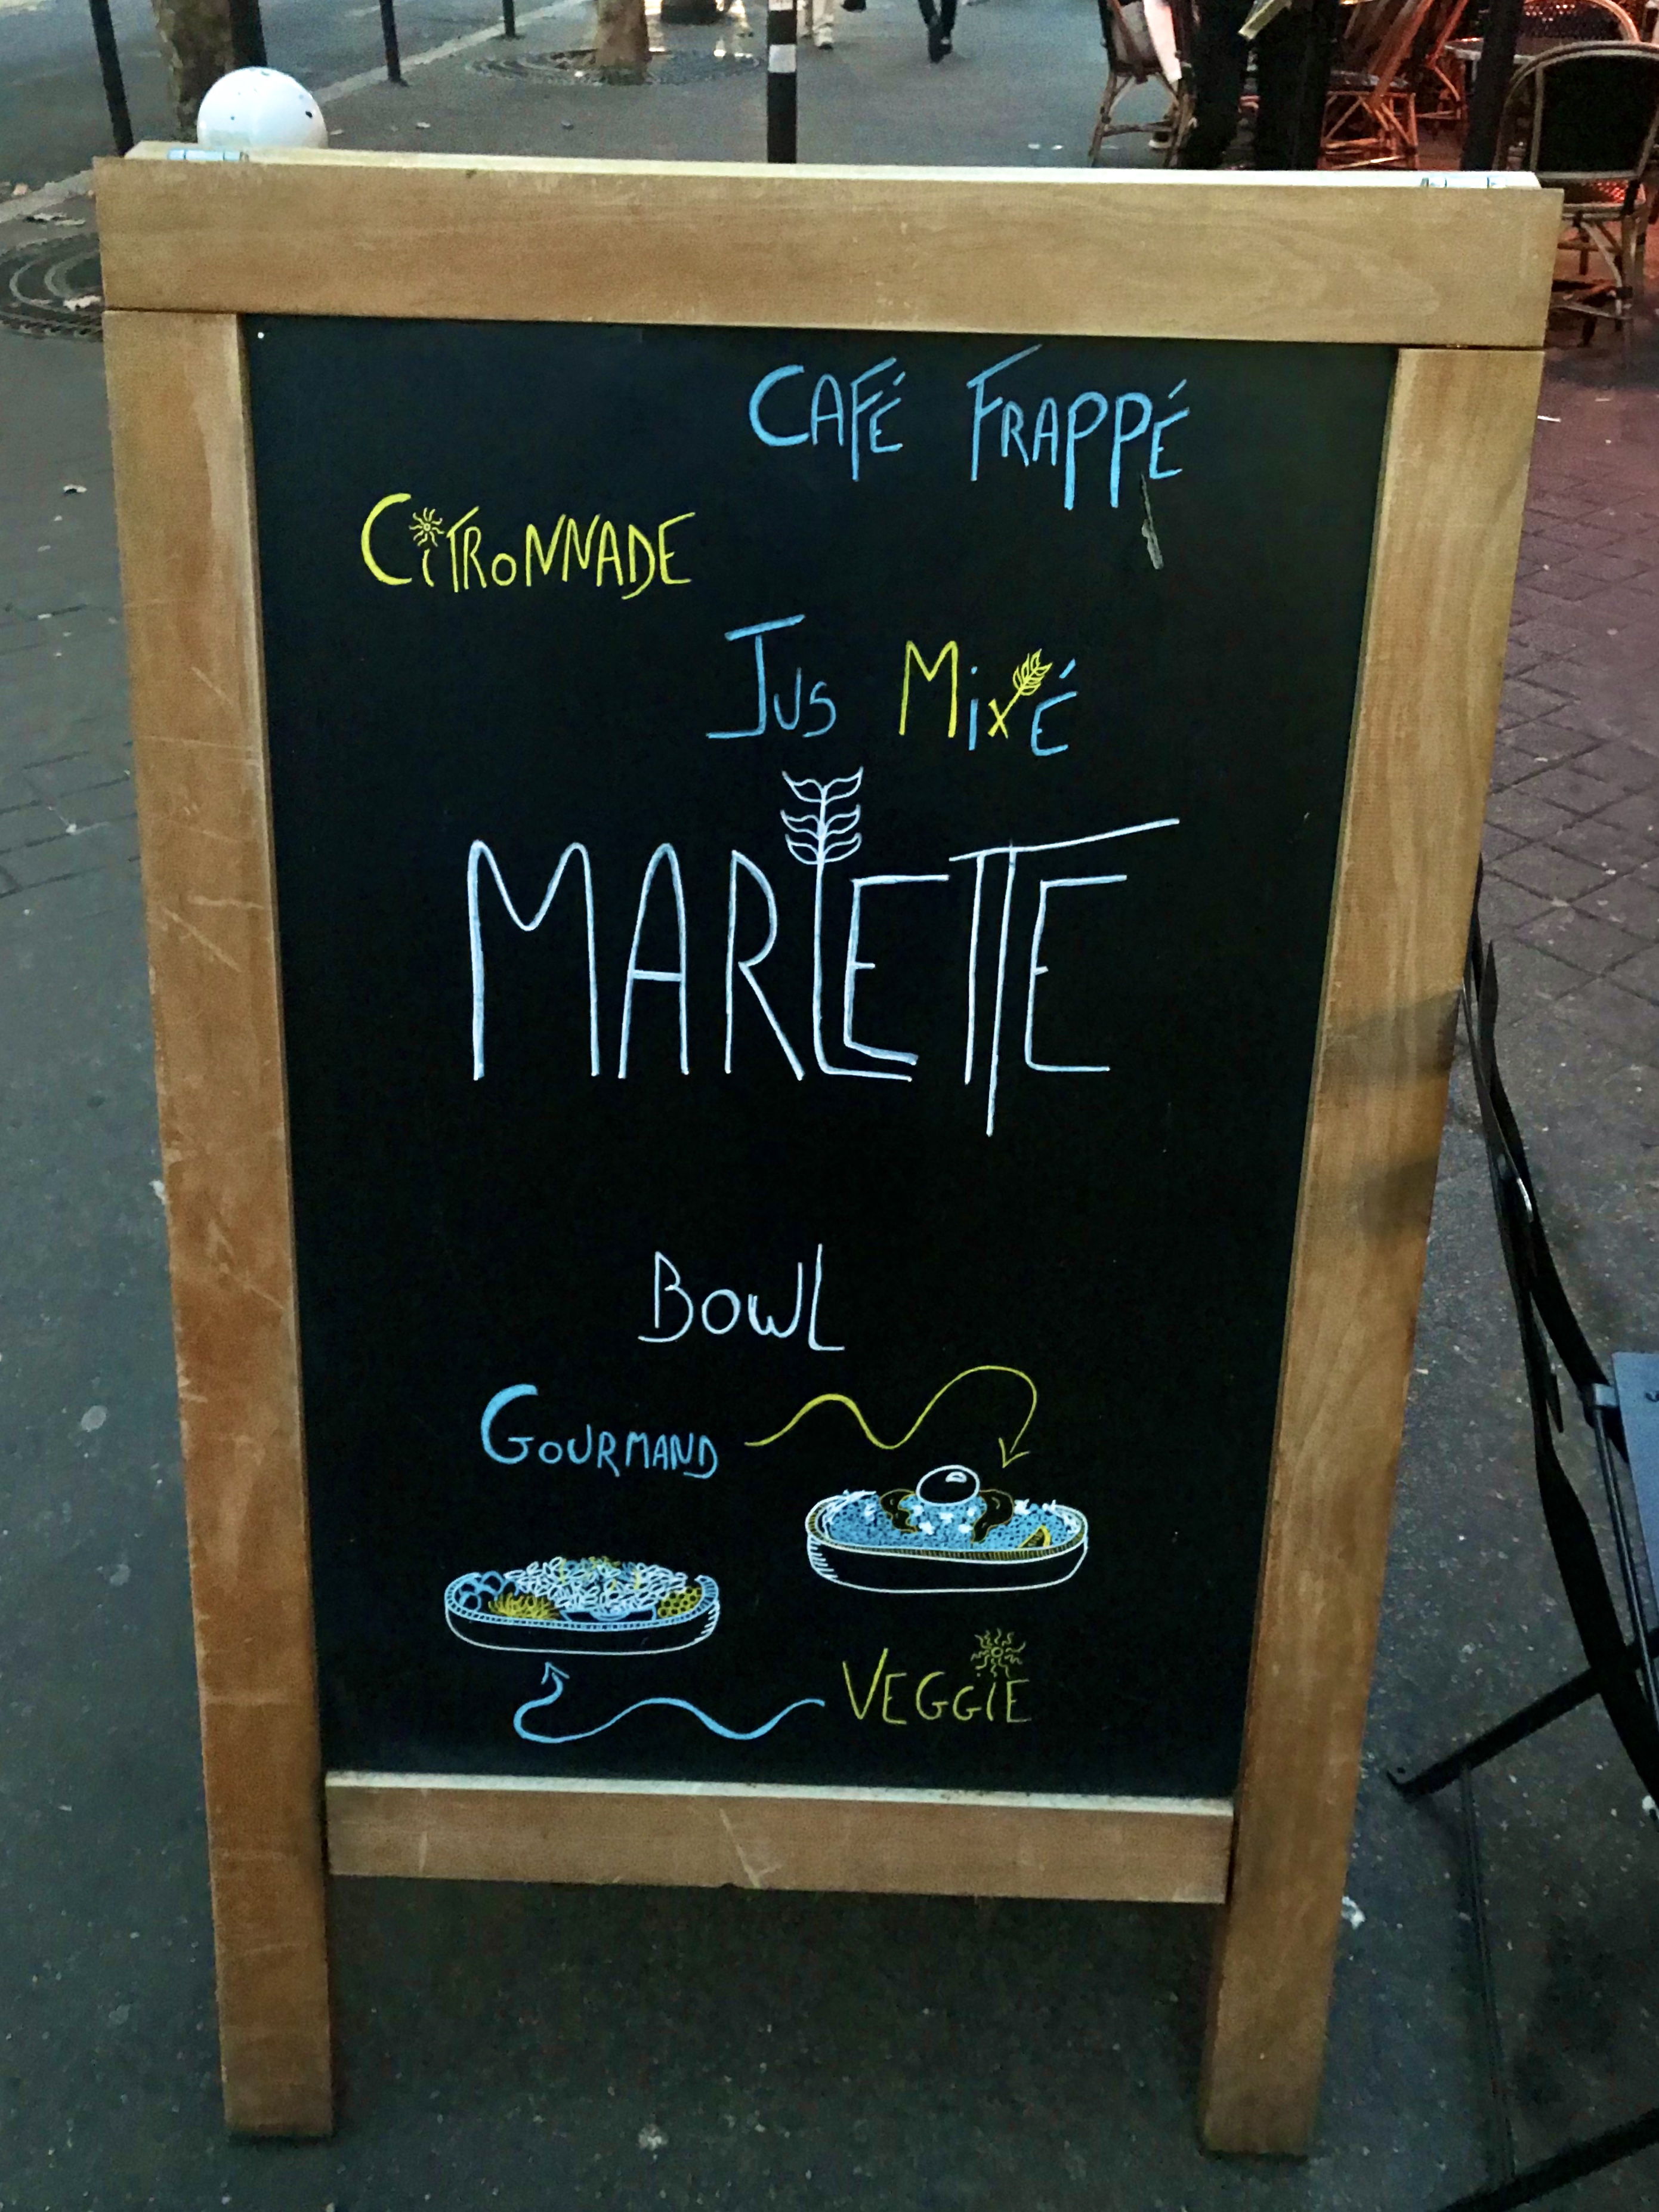 CAFÉ FRAPPÉ
CiTRoNNADE
Jus MixÉ
MARLETTE
BowL
GoURMAND
VEGGiE